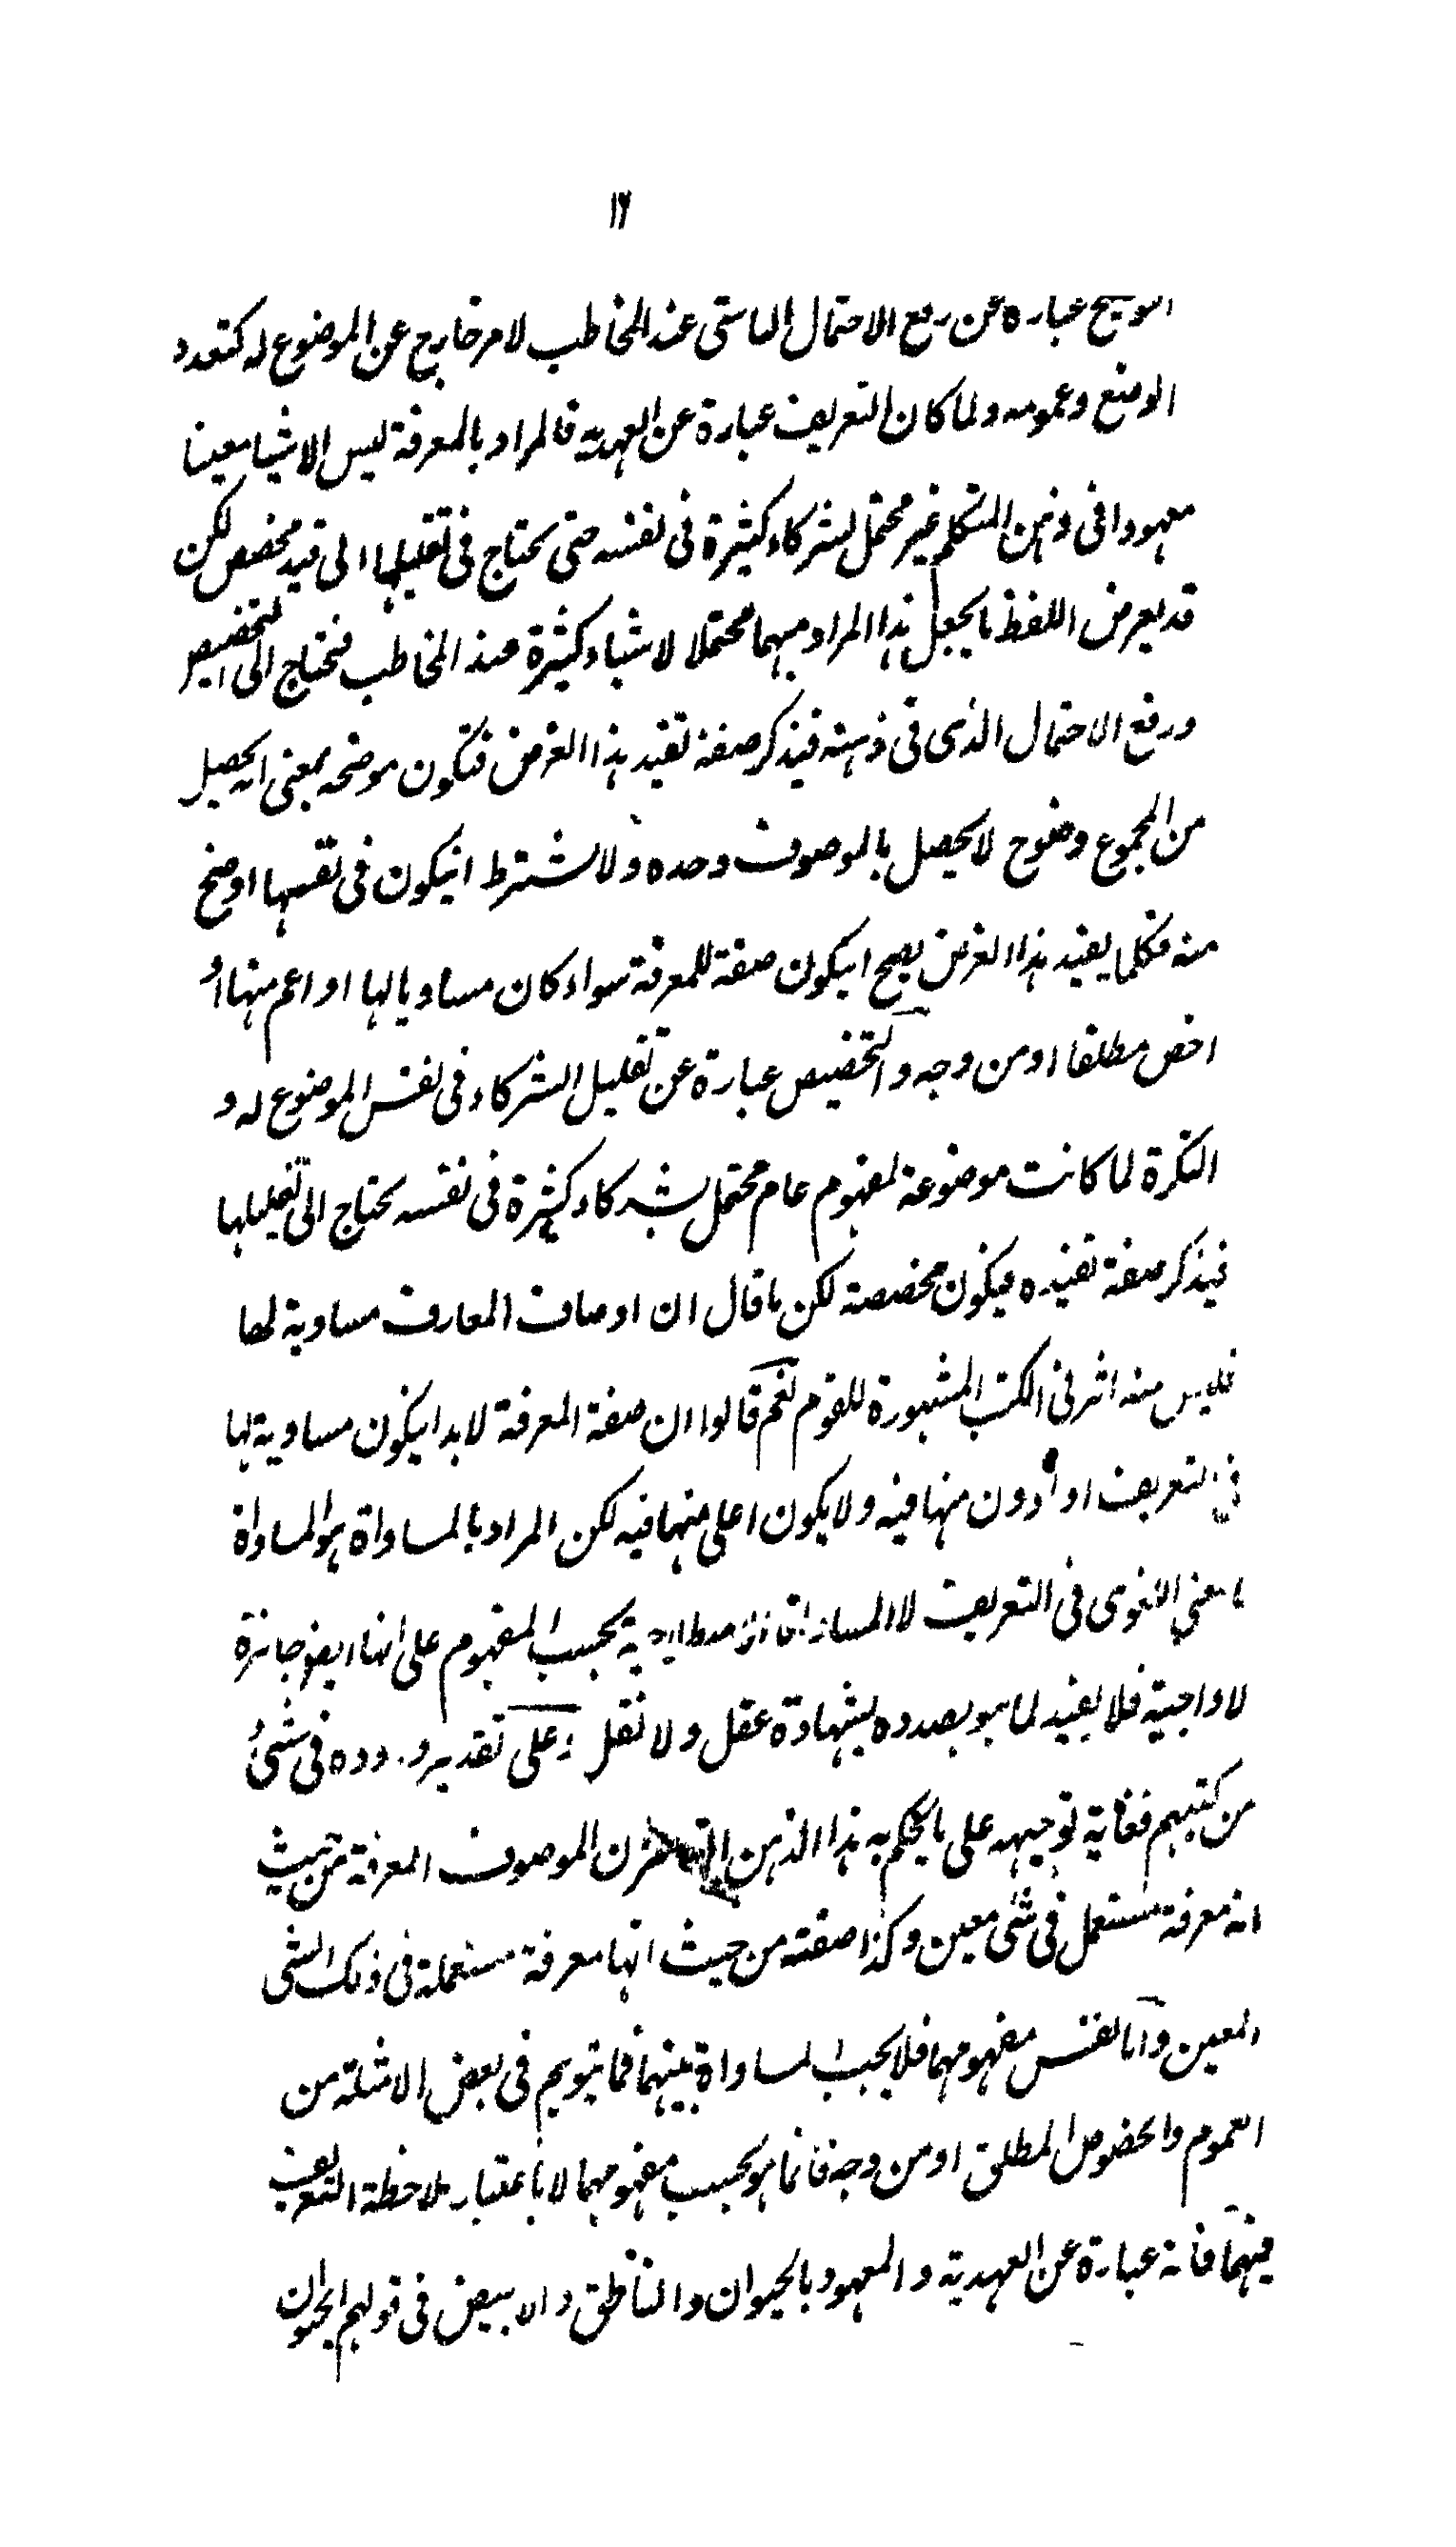 ١٦
التوضيح عبارة عن رفع الاحتمال الناشى عند المخاطب لامر خارج عن الموضوع له كتعدد
الوضع وعمومه ولما كان التعريف عبارة عن العهدية فالمراد بالمعرفة ليس الا شيئا معينا
معهودا فى ذهن المتكلم غير محتمل لشركاء كثيرة فى نفسه حتى يحتاج فى تقليلها الى قيد مخصص لكن
قد يعرض اللفظ ما يجعل هذا المراد مبهما محتملا لاشياء كثيرة عند المخاطب فيحتاج الى التخصيص
ورفع الاحتمال الذى فى ذهنه فيذكر صفة تفيد هذا الغرض فتكون موضحه بمعنى انه يحصل
من المجموع وضوح لا يحصل بالموصوف وحده ولا يشترط انيكون فى نفسها اوضح
منه فكلما يفيد هذا الغرض يصح انيكون صفة للمعرفة سواء كان مساويا لها او اعم منها او
اخص مطلقا او من وجه والتخصيص عبارة عن تقليل الشركاء فى نفس الموضوع له و
النكرة لما كانت موضوعة لمفهوم عام محتمل لشركاء كثيرة فى نفسه يحتاج الى تقليلها
فيذكر صفة تفيده فيكون مخصصة لكن ما قال ان اوصاف المعارف مساوية لها
فليس منه اثر فى الكتب المشهورة للقوم نعم قالوا ان صفة المعرفة لابد ايكون مساوية لها
فى التعريف او ادون منها فيه ولا يكون اعلى منها فيه لكن المراد بالمساواة هو المساواة
بالمعنى اللغوى فى التعريف لا المساواة الاصطلاحية بحسب المفهوم على انها ايضا جائزة
لا واجبة فلا يفيد لما هو بصدده بشهادة عقل ولا نقل وعلى تقدير وروده فى شئ
من كتبهم فغاية توجيهه على ما يحكم به هذا الذهن ان الموصوف المعرفة من حيث
انه معرفة مستعمل فى شئ معين وكذا صفته من حيث انها معرفة مستعملة فى ذلك الشئ
المعين واما نفس مفهومهما فلا يجب المساواة بينهما فما يتوهم فى بعض الامثلة من
العموم والخصوص المطلق او من وجه فانما هو بحسب مفهومهما لا باعتبار ملاحظة التعريف
فيهما فانه عبارة عن العهدية والمعهود بالحيوان والناطق والابيض فى قولهم الحيوان